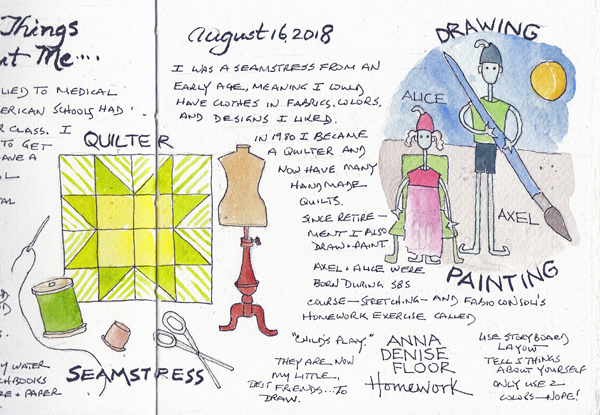 Things
t Me....
LIED TO MEDICAL
ERICAN SCHOOLS HAD
R CLASS. I
TO GET
AVE A
AL
TAL
S.
Y WATER
CHBOOKS
RE + PAPER
QUILTER
SEAMSTRESS
August 16, 2018
I WAS A SEAMSTRESS FROM AN
EARLY AGE, MEANING I COULD
HAVE CLOTHES IN FABRICS, COLORS,
AND DESIGNS I LIKED.
IN 1980 I BECAME
A QUILTER AND
NOW HAVE MANY
HANDMADE
QUILTS.
SINCE RETIRE-
MENT I ALSO
DRAW + PAINT.
AXEL + ALICE WERE
BORN DURING SBS
COURSE—STRETCHING—AND FABIO CONSOLI'S
HOMEWORK EXERCISE CALLED
"CHILD'S PLAY."
THEY ARE NOW
MY LITTLE,
BEST FRIENDS...TO
DRAW.
DRAWING
ALICE
AXEL
PAINTING
ANNA
DENISE
FLOOR
Homework
USE STORYBOARD
LAYOUT
TELL 5 THINGS
ABOUT YOURSELF
ONLY USE 2
COLORS—NOPE!